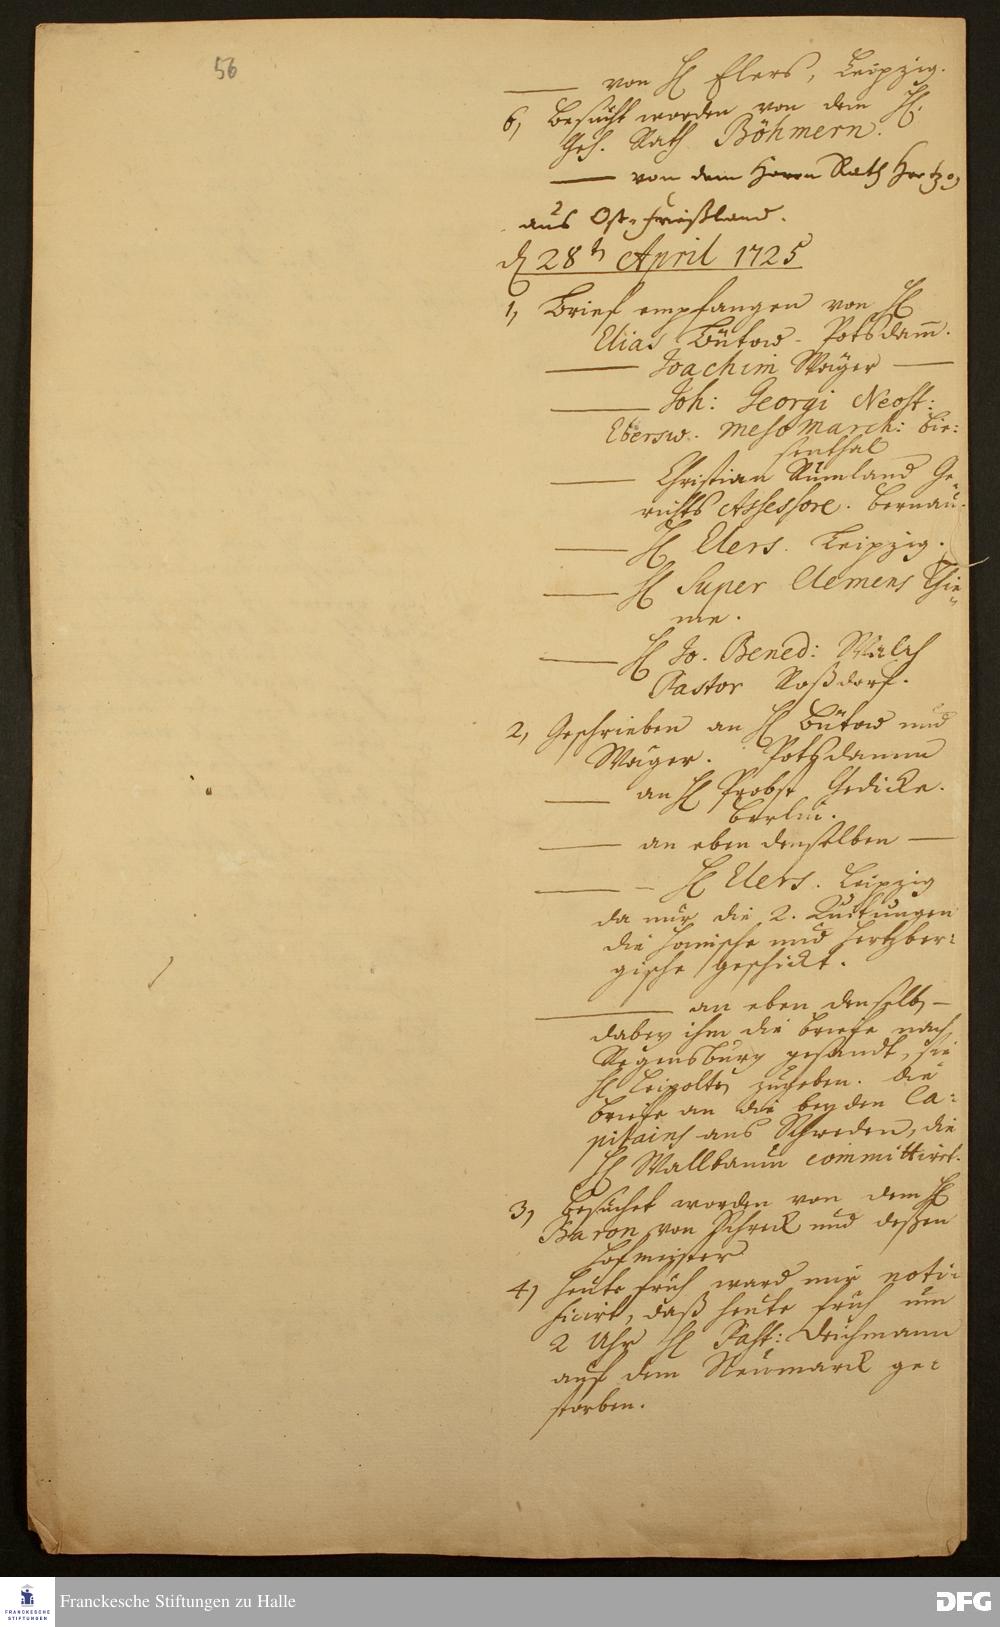 56
von H Elers, Leipzig.
6, Besucht worden von dem H.
Geh. Rath Böhmern.
von dem Herrn Rath Hertzog
aus Ost-Frießland.
d 28 April 1725
1, Brief empfangen von H
Elias Bütow - Potsdam̄.
Joachim Wäger
Joh: Georgi Neost:
Ebersw. Mesomarch: Bie:
senthal
Christian Rümland Ge
richts Assessore. Bernau.
H Elers. Leipzig.
H Super Clemens Thie
me.
H Jo. Bened: Walch
Pastor Roßdorf.
2, Geschrieben an H Bütow und
Wäger. Potsdamm
an H Probst Gedicke.
Berlin.
an eben denselben
H Elers. Leipzig
da nur die 2. Quitungen
die und Hertzber:
gische geschickt.
an eben denselb
dabey ihm die Briefe nach
Regensburg gesandt, sie
H Leipolten zugeben. Die
Briefe an die beyden Ca:
pitains aus Schweden, die
H Wallbaum committiret.
3, Besuchet worden von dem H
Baron von Schreck und deßen
Hofmeister
4, Heute früh ward mir noti:
ficirt, daß heute früh um
2 Uhr H Past: Deichmann
auf dem Neumarck ge:
storben.
Franckesche Stiftungen zu Halle
FRANCKESCHE
STIFTUNGEN
DFG